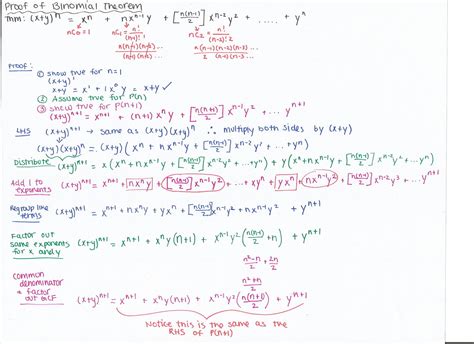 Proof of Binomial Theorem
mm: (x+y)^n = x^n + nx^(n-1)y + [n(n-1)/2] x^(n-2)y^2 + .... + y^n
nC0 = 1 nC1 = n!/(n-1)! nC2 = n!/(n-2)!2
n(n-1)(n-2)... n(n-1)(n-2)(n-3)...
Proof:
① show true for n=1
(x+y)^1
x+y = x^1 + 1x^0y = x+y ✓
② Assume true for P(n)
③ show true for P(n+1)
(x+y)^(n+1) = x^(n+1) + (n+1)x^n y + [n(n+1)/2] x^(n-1)y^2 + .... y^(n+1)
LHS (x+y)^(n+1) → same as (x+y)(x+y)^n ∴ multiply both sides by (x+y)
(x+y)(x+y)^n = (x+y)(x^n + nx^(n-1)y + [n(n-1)/2] x^(n-2)y^2 + ... y^n)
Distribute (x+y)^(n+1) = x(x^n + nx^(n-1)y + [n(n-1)/2] x^(n-2)y^2 + ... y^n) + y(x^n + nx^(n-1)y + [n(n-1)/2] x^(n-2)y^2 + ... y^n)
Add 1 to exponents (x+y)^(n+1) = x^(n+1) + nx^n y + [n(n-1)/2] x^(n-1)y^2 ... + xy^n + yx^n + nx^(n-1)y^2 + [n(n-1)/2] x^(n-2)y^3 ... + y^(n+1)
Regroup like terms (x+y)^(n+1) = x^(n+1) + nx^n y + yx^n + [n(n-1)/2] x^(n-1)y^2 + nx^(n-1)y^2 + y^(n+1)
Factor out same exponents for x and y (x+y)^(n+1) = x^(n+1) + x^n y(n+1) + x^(n-1)y^2 (n(n-1)/2 + n) + y^(n+1)
n^2-n/2 + 2n/2
common denominator & factor out GCF
n^2+n/2
(x+y)^(n+1) = x^(n+1) + x^n y(n+1) + x^(n-1)y^2 (n(n+1)/2) + y^(n+1)
Notice this is the same as the
RHS of P(n+1)